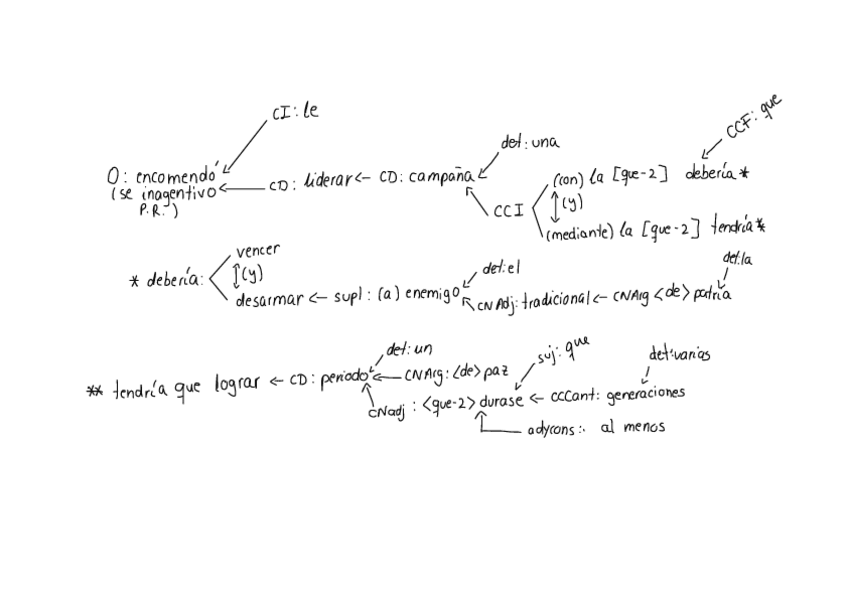 CI: le
CCF: que
det: una
O: encomendó ← CD: liderar ← CD: campaña
(se inagentivo
P.R.)
(con) la [que-2] debería *
CCI (y)
(mediante) la [que-2] tendría **
vencer
* debería: (y)
desarmar ← supl: (a) enemigo
det: el
CNAdj: tradicional ← CNArg <de> patria
det: la
det: un
** tendría que lograr ← CD: periodo ← CNArg: <de> paz
suj: que
det: varias
CNadj: <que-2> durase ← CCCant: generaciones
adycons: al menos